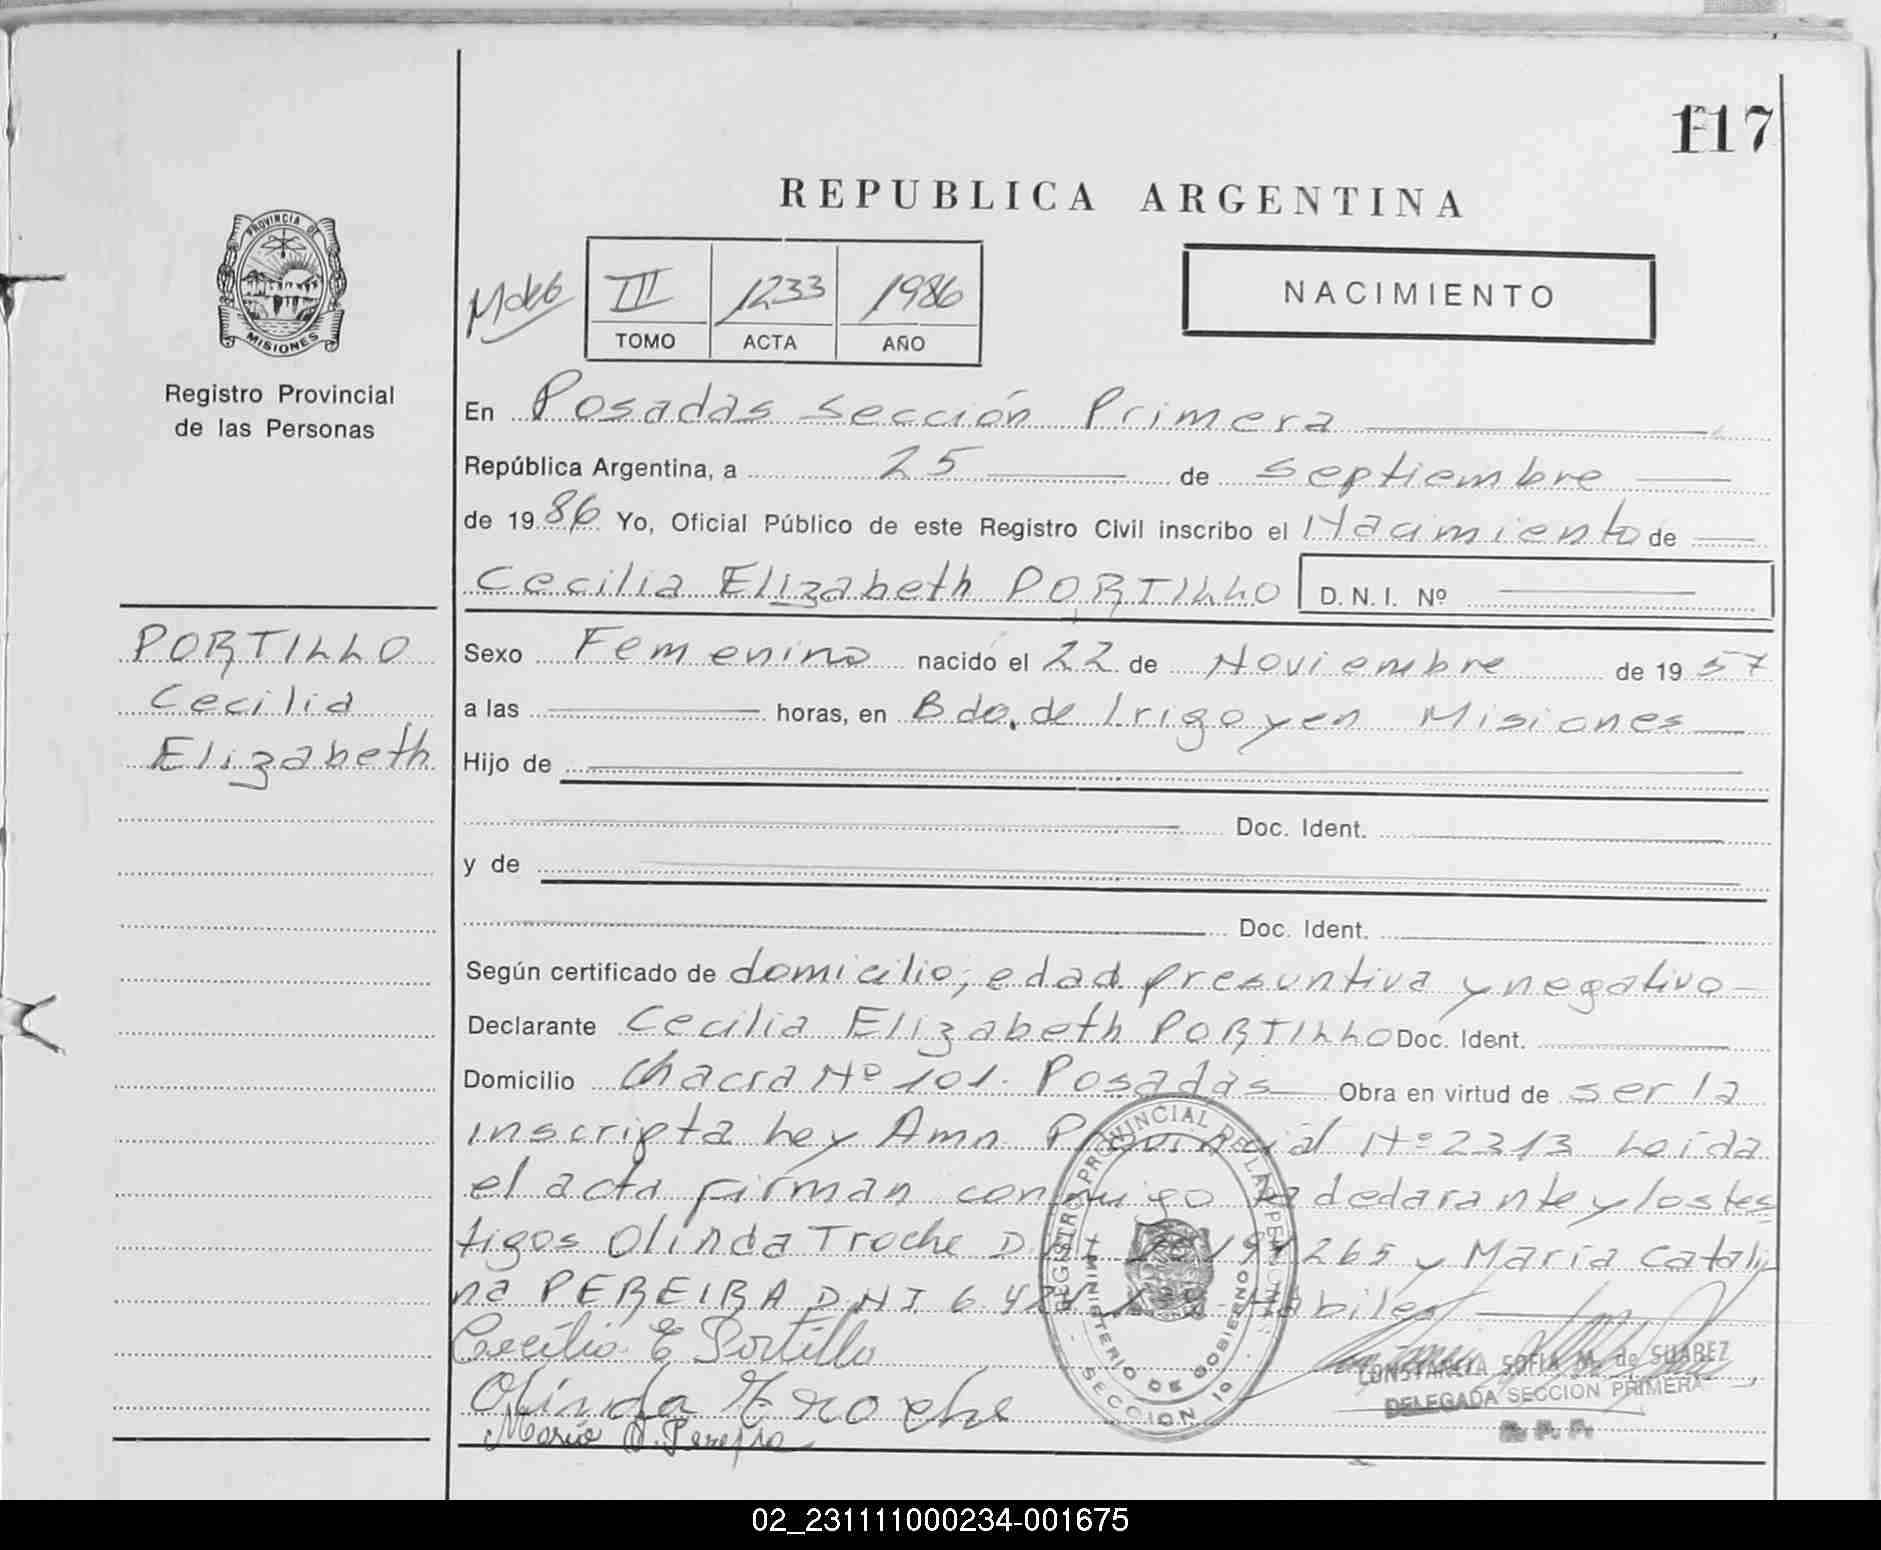 117
REPUBLICA ARGENTINA
PROVINCIA DE
MISIONES
Registro Provincial
de las Personas
III 1233 1986
TOMO ACTA AÑO
NACIMIENTO
En Posadas Sección Primera
República Argentina, a 25 de Septiembre
de 1986 Yo, Oficial Público de este Registro Civil inscribo el Nacimiento de
Cecilia Elizabeth PORTILLO D.N.I. Nº
PORTILLO
Cecilia
Elizabeth
Sexo Femenino nacido el 22 de Noviembre de 1957
a las horas, en Bdo. de Irigoyen Misiones
Hijo de
Doc. Ident.
y de
Doc. Ident.
Según certificado de domicilio, edad presuntiva y negativo
Declarante Cecilia Elizabeth PORTILLO Doc. Ident.
Domicilio Chacra Nº 101. Posadas Obra en virtud de ser la
inscripta Ley Amn Provincial Nº 2313 Leída
el acta firman conmigo la declarante y los tes
tigos Olinda Troche D.N.I. y María Catali
na PEREIRA DNI Hábiles
Cecilia E Portillo
Olinda Troche
María C. Pereira
REGISTRO PROVINCIAL DE LAS PERSONAS
MINISTERIO DE GOBIERNO
SECCION 1ª
CONSTANCIA SOFIA M. de SUAREZ
DELEGADA SECCION PRIMERA
R. P. P.
02_231111000234-001675